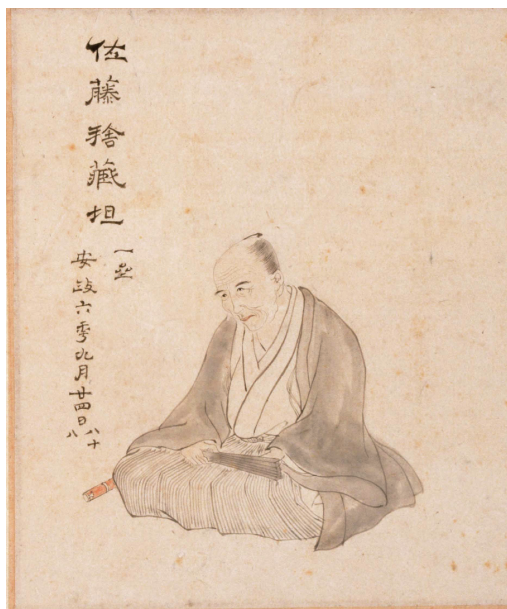 佐藤捨藏坦
一斎
安政六季九月廿四日
八十
八